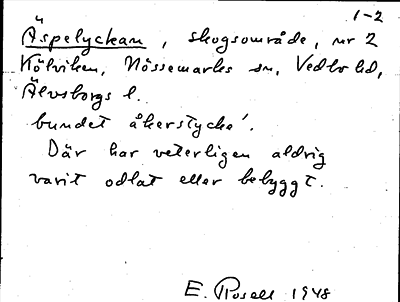 1-2
Äspelyckan, skogsområde, nr 2
Kölviken, Nössemarks sn, Vedbo hd,
Älvsborgs l.
bundet åkerstycke'.
Där har veterligen aldrig
varit odlat eller bebyggt.
E. Rosell 1948